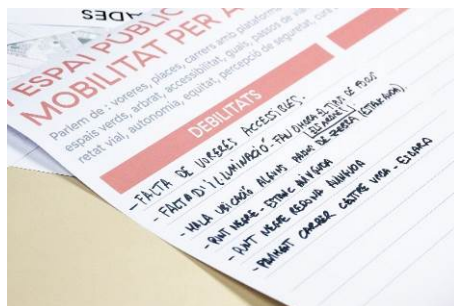 ADES
ESPAI PÚBLIC
MOBILITAT PER A
Parlem de: voreres, places, carrers amb plataforma
espais verds, arbrat, accessibilitat, guals, passos de via
retat vial, autonomia, equitat, percepció de seguretat, cura
DEBILITATS
- FALTA DE VORERES ACCESSIBLES.
- FALTA D'IL·LUMINACIÓ - FAU OMBRA EL TIPUS DE FOCUS
- MALA UBICACIÓ ALGUNS PASSOS DE ZEBRA (ESTANC AVDA)
- PUNT NEGRE - ESTANC AVINGUDA
- PUNT NEGRE REDONA AVINGUDA
- PAVIMENT CARRER CENTRE VORA -